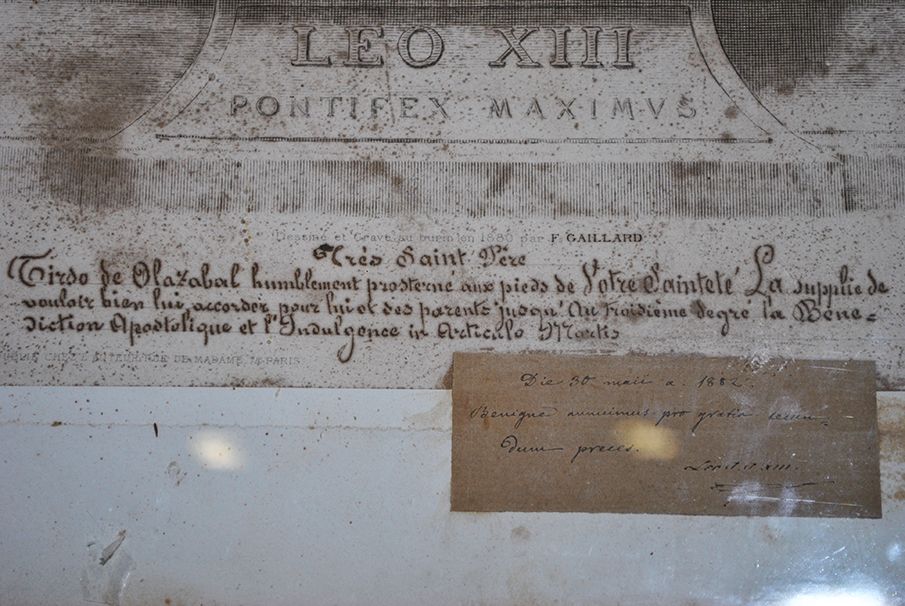 LEO XIII
PONTIFEX MAXIMVS
Dessiné et Gravé au burin en 1880 par F. GAILLARD
Très Saint Père
Tirso de Olazabal humblement prosterné aux pieds de Votre Sainteté La supplie de
vouloir bien lui accorder pour lui et ses parents jusqu'au troisième degré la Béné-
diction Apostolique et l'Indulgence in Articulo Mortis
CHEZ L'AUTEUR RUE DE MADAME PARIS
Die 30 maii a. 1882
Benigne annuimus pro gratia secun-
dum preces.
Leo P.P. XIII.